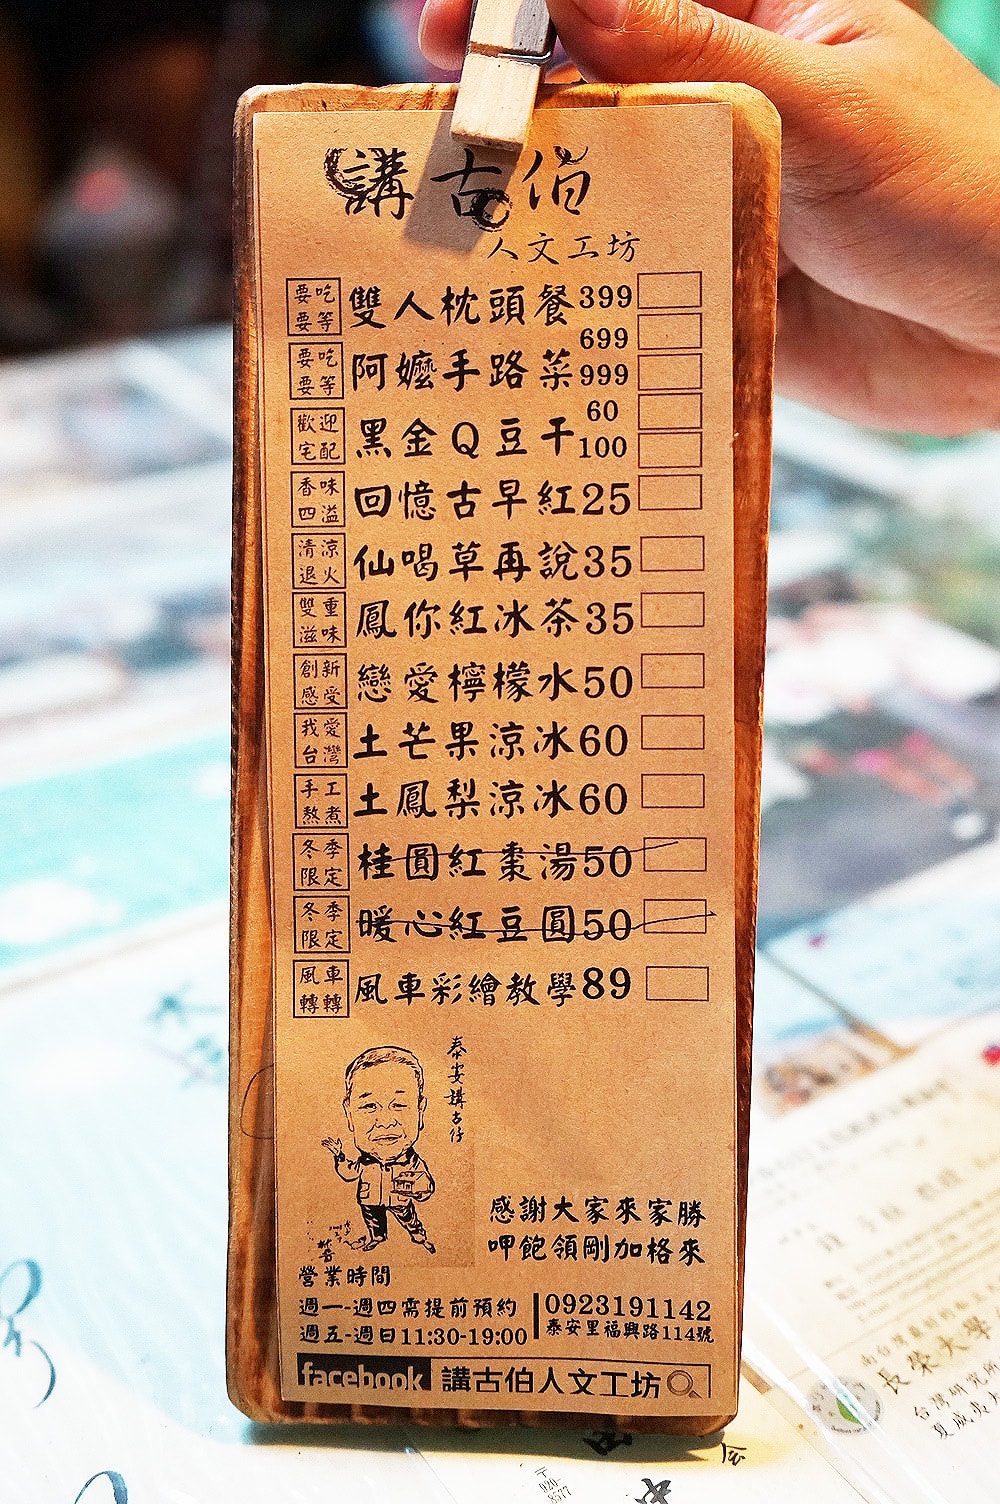 講古伯
人文工坊
要吃要等 雙人枕頭餐399
699
要吃要等 阿嬤手路菜999
60
歡迎宅配 黑金Q豆干100
香味四溢 回憶古早紅25
清涼退火 仙喝草再說35
雙重滋味 鳳你紅冰茶35
創新感受 戀愛檸檬水50
我愛台灣 土芒果涼冰60
手工熬煮 土鳳梨涼冰60
冬季限定 桂圓紅棗湯50
冬季限定 暖心紅豆圓50
風車轉轉 風車彩繪教學89
泰安講古伯
感謝大家來家勝
呷飽領剛加格來
營業時間
週一-週四需提前預約
週五-週日11:30-19:00
0923191142
泰安里福興路114號
facebook 講古伯人文工坊
長榮大學
台灣研究所
〒
920-
8577